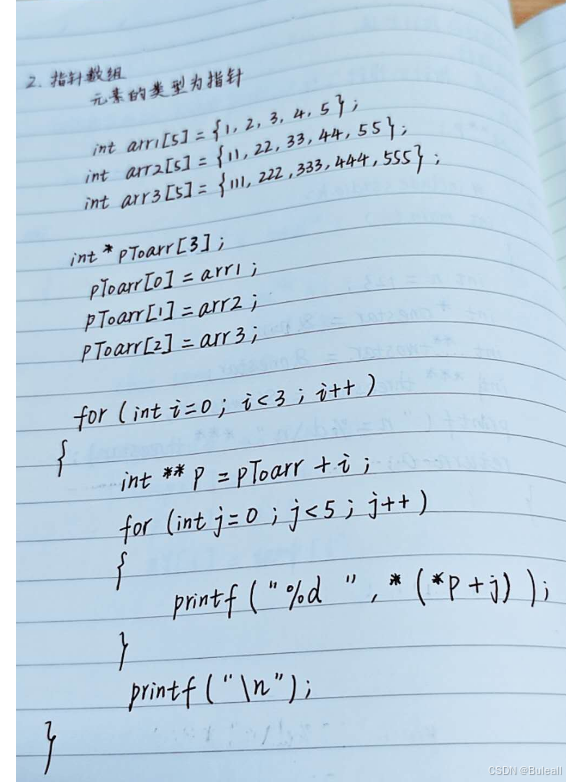 2. 指针数组
元素的类型为指针
int arr1[5] = {1, 2, 3, 4, 5};
int arr2[5] = {11, 22, 33, 44, 55};
int arr3[5] = {111, 222, 333, 444, 555};
int * pToarr[3];
pToarr[0] = arr1;
pToarr[1] = arr2;
pToarr[2] = arr3;
for (int i=0; i<3; i++)
{
int ** p = pToarr + i;
for (int j=0; j<5; j++)
{
printf("%d ", *(*p+j));
}
printf("\n");
}
CSDN @Buleall